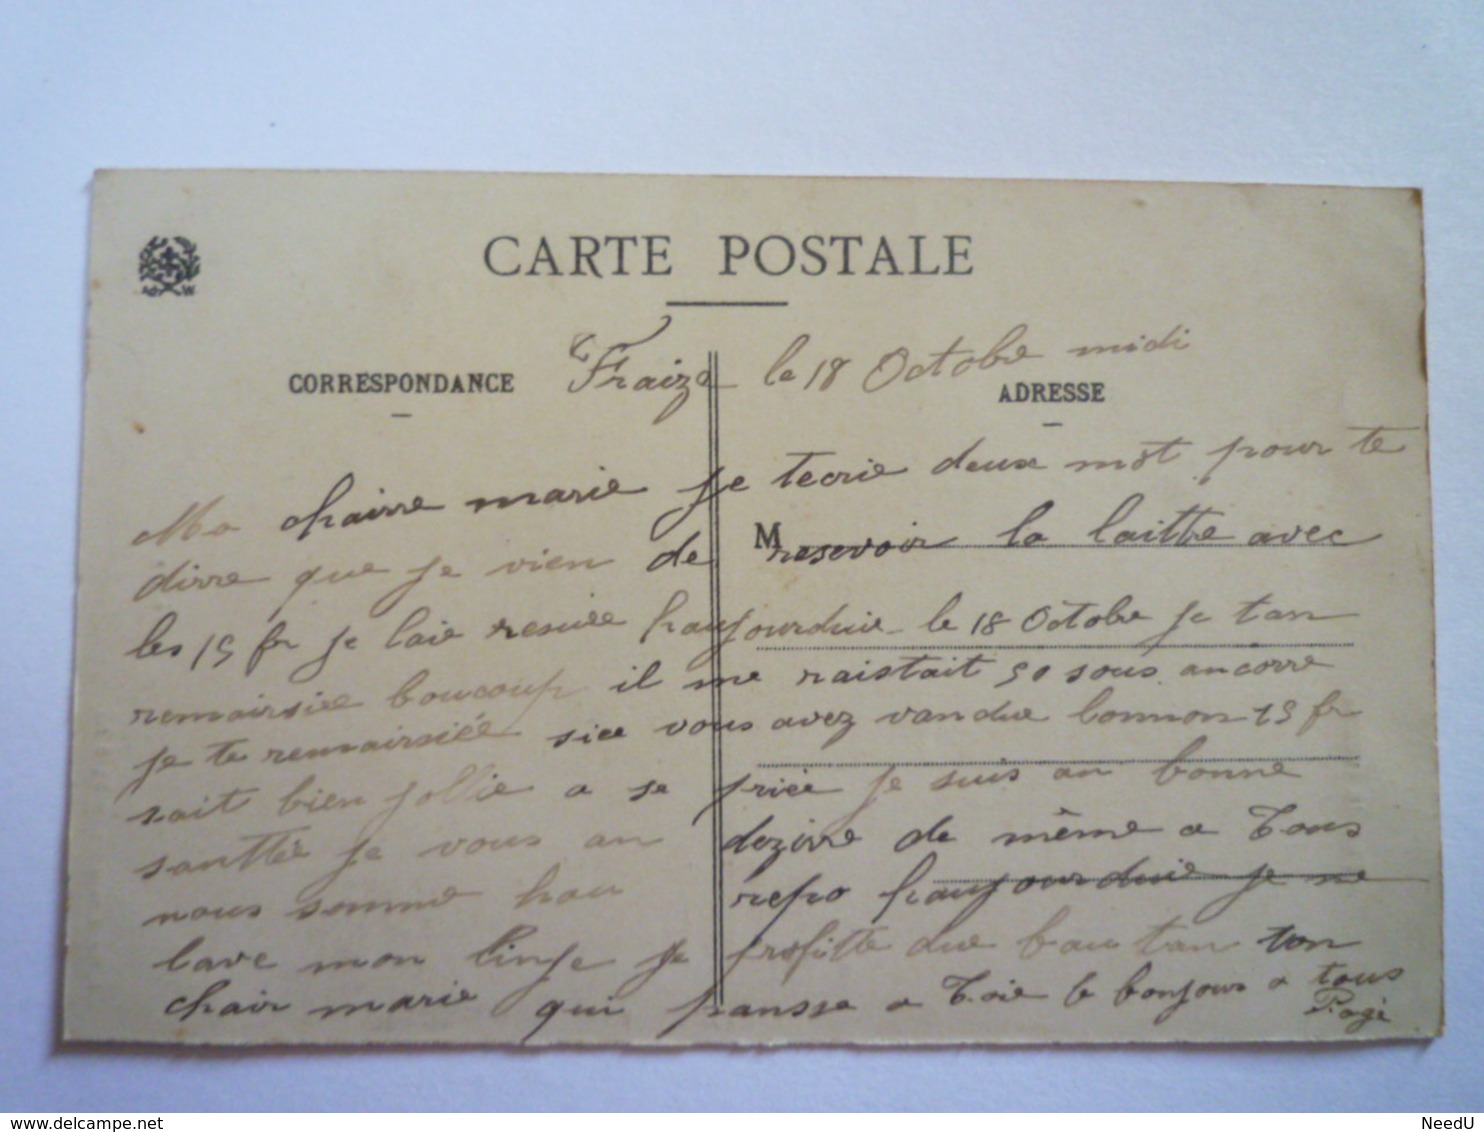 CARTE POSTALE
CORRESPONDANCE
ADRESSE
Fraize le 18 Octobre midi
Ma chairre marie je tecrie deux mot pour te
M
dirre que je vien de resevoir la laittre avec
les 15 fr je laie resuee haujourduie le 18 Octobre je tan
remairsiee boucoup il me raistait 50 sous ancorre
je te remairsiée siee vous avez vandue 15 fr
sait bien jollie a se priée je suis an bonne
santtée je vous an dezirre de même a Tous
nous somme hau repo haujourduie je me
lave mon linje je profitte due bau tan ton
chair marie qui pansse a Toie le bonjour a tous
P.ogé
NeedU